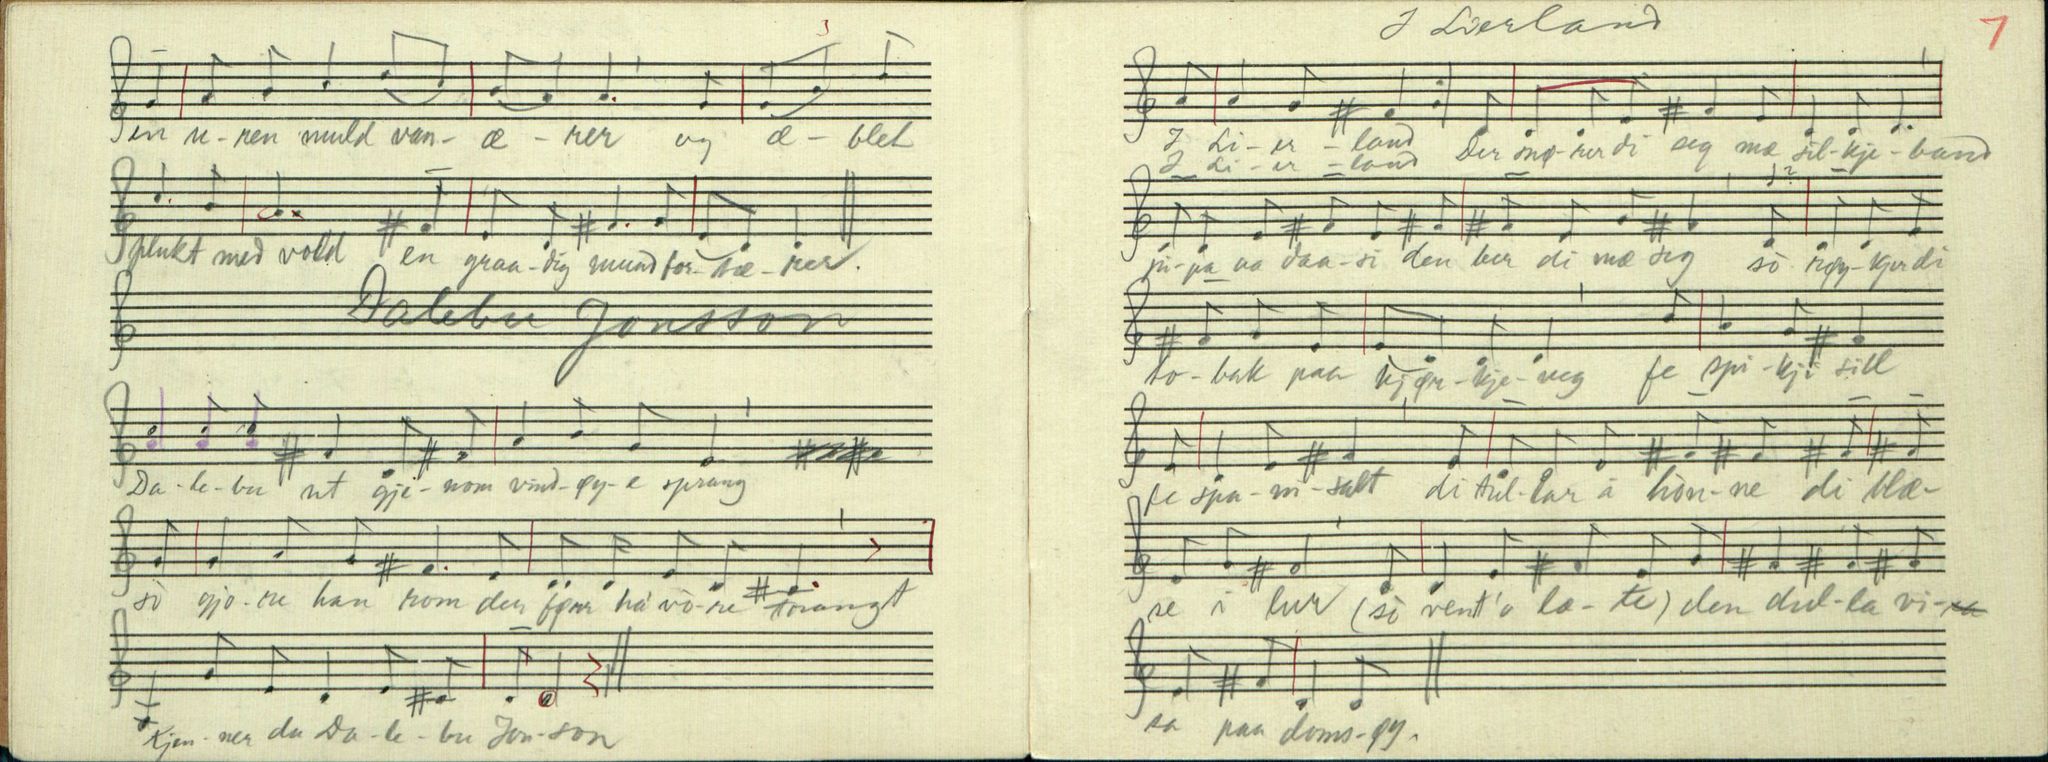 3
en u-ren muld van- æ - rer og æ - blet
plukt med vold en graa-dig mund for-tæ-rer.
Dalebu Jonsson
Da-le-bu ut gje-nom vind-øy-e sprang
sò gjo-re han rom der fyrr ha vò-re trangt
Kjen-ner du Da-le-bu Jon-son
I Lierland
7
I Li-er-land Der snø-rer di seg mæ sil-kje-band
I Li-er-land
pi-pa aa daa-si den ber di mæ seg sò røy-kjer di
to-bak paa kjør-kje-veg fe spi-kji sill
fe spa-ni-salt di tul-lar å hòn-ne di blæ-
se i lur (sò vent'o læ-te) den dul-la vi-
sa paa doms-øy.